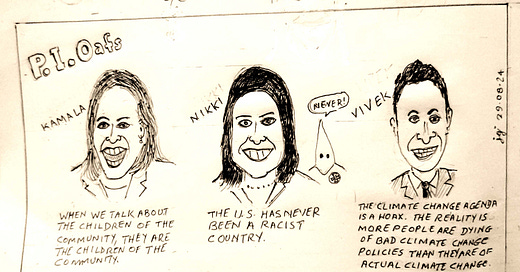 P.I.Oafs
KAMALA
NIKKI
NEVER!
VIVEK
jg' 29.08.24
WHEN WE TALK ABOUT
THE CHILDREN OF THE
COMMUNITY, THEY ARE
THE CHILDREN OF THE
COMMUNITY.
THE U.S. HAS NEVER
BEEN A RACIST
COUNTRY.
THE CLIMATE CHANGE AGENDA
IS A HOAX. THE REALITY IS
MORE PEOPLE ARE DYING
OF BAD CLIMATE CHANGE
POLICIES THAN THEY ARE OF
ACTUAL CLIMATE CHANGE.